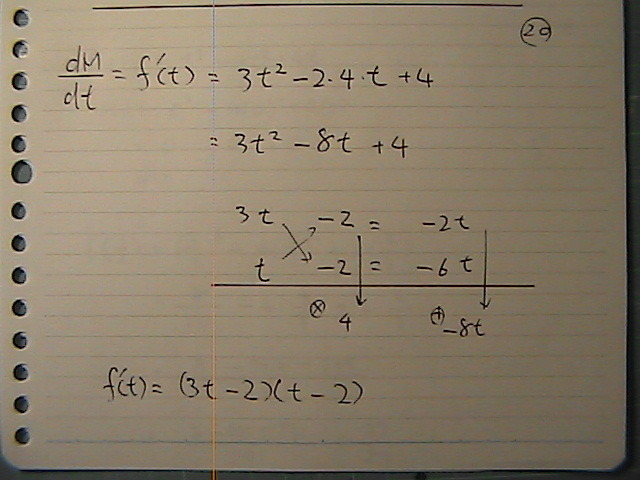 20
dM/dt = f'(t) = 3t² - 2·4·t + 4
= 3t² - 8t + 4
3t -2 = -2t
t -2 = -6t
⊗ 4 ⊕ -8t
f'(t) = (3t - 2)(t - 2)